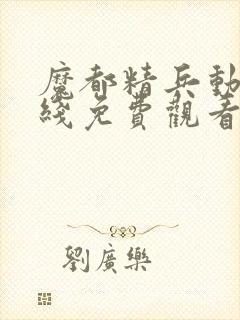 魔都精兵動
綫免費觀看
劉廣樂